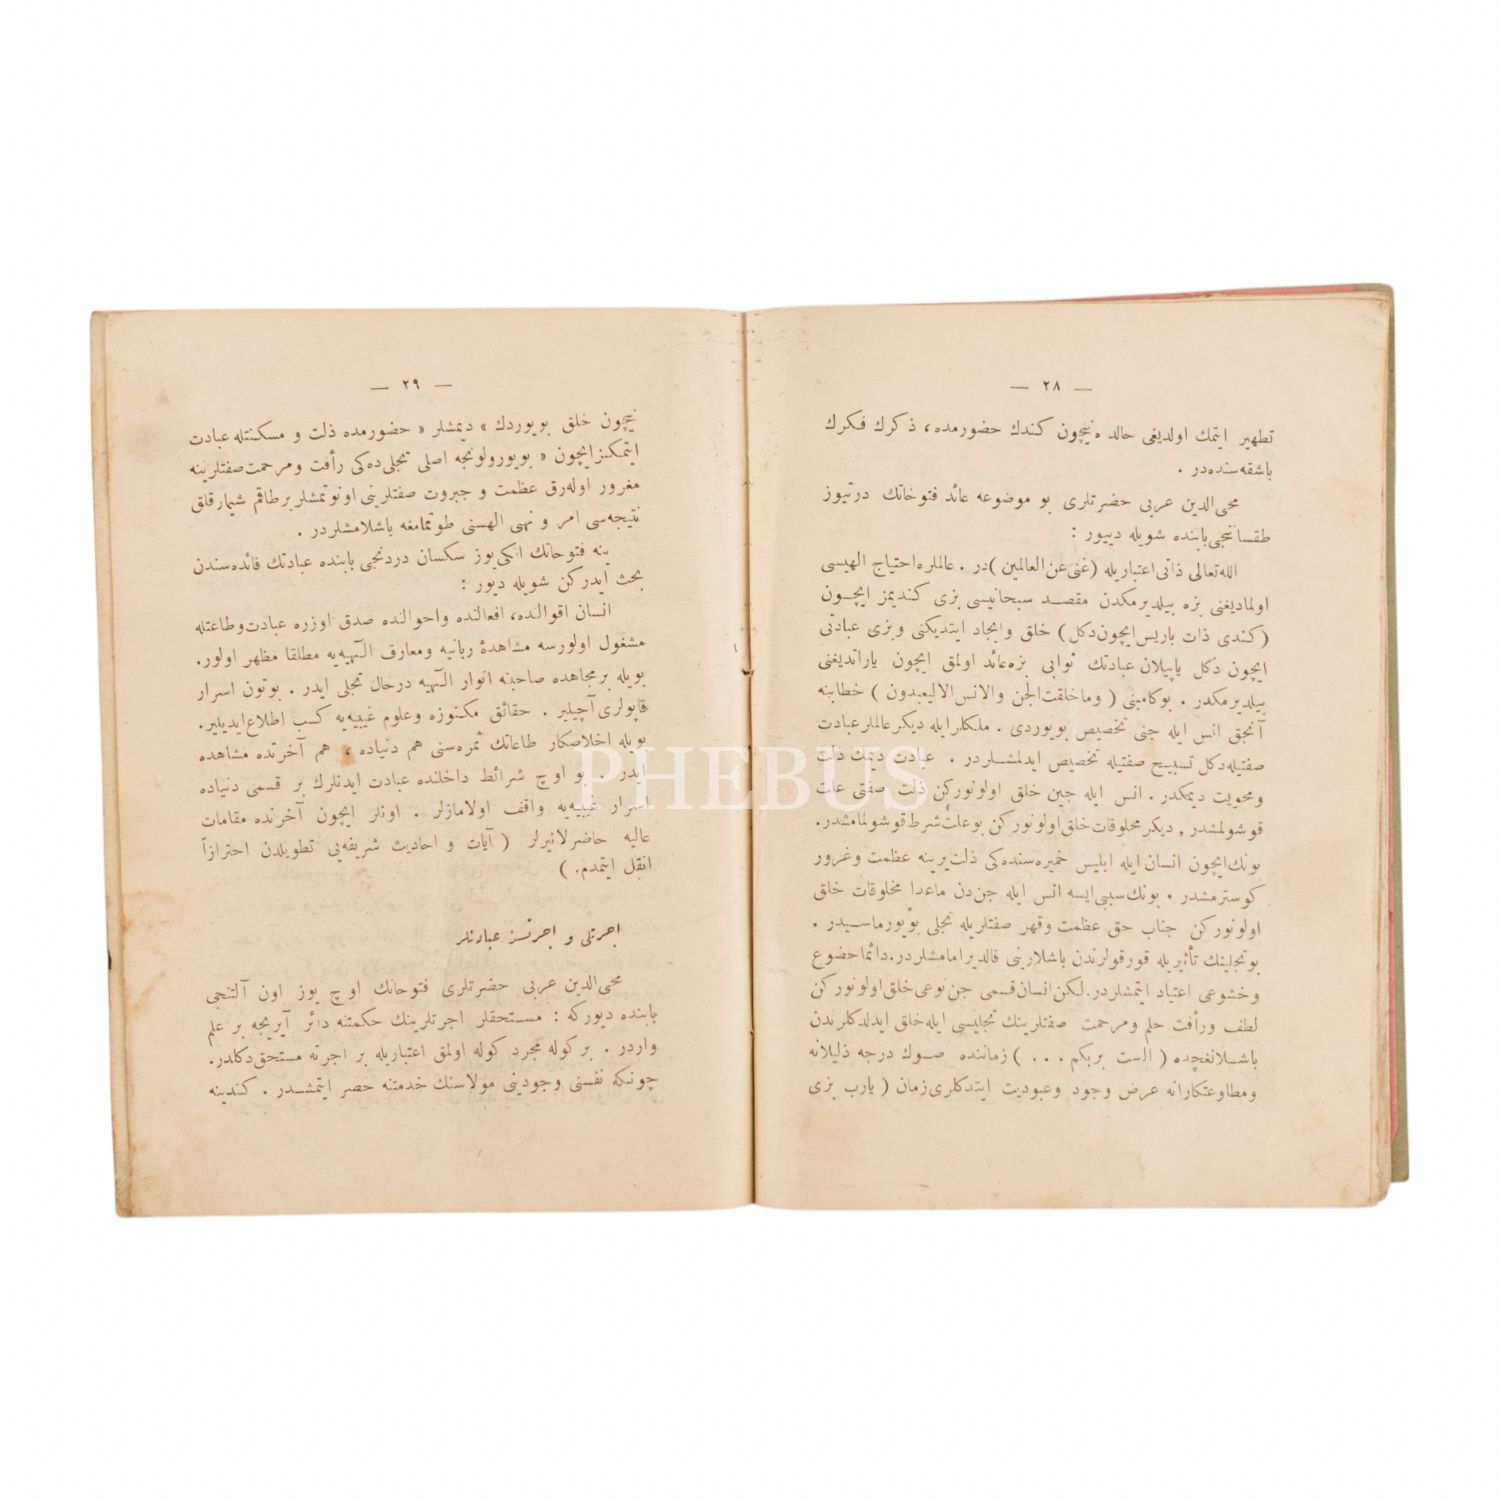 — ٢٨ —
تطهير ايتمك اولديغى حالده نيچون كندك حضورمده، ذكرك فكرك
باشقه‌سنده‌در .
محى‌الدين عربى حضرتلرى بو موضوعه عائد فتوحاتك درتيوز
طقسانجى بابنده شويله دييور :
الله‌تعالى ذاتى اعتباريله (غنى عن العالمين) در . عالملره احتياج الهيسى
اولماديغنى بزه بيلديرمكدن مقصد سبحانيسى بزى كنديمز ايچون
(كندى ذات باريس ايچون دكل) خلق و ايجاد ايتديكنى و بزى عبادتى
ايچون دكل ياپيلان عبادتك ثوابى بزه عائد اولمق ايچون ياراتديغنى
بيلديرمكدر . بوكا مبنى ( وماخلقت الجن والانس الا ليعبدون ) خطابنه
آنجق انس ايله جنى تخصيص بويوردى . ملكلر ايله ديكر عالملر عبادت
صفتيله دكل تسبيح صفتيله تخصيص ايدلمشلردر . عبادت ديمك ذلت
و محويت ديمكدر . انس ايله جين خلق اولونوركن ذلت صفتى علت
قوشولمشدر , ديكر مخلوقات خلق اولونوركن بو علت شرط قوشولمامشدر.
بونك ايچون انسان ايله ابليس خميره‌سنده‌كى ذلت يرينه عظمت و غرور
كوسترمشدر . بونك سببى ايسه انس ايله جن‌دن ماعدا مخلوقات خلق
اولونوركن جناب حق عظمت و قهر صفتلريله تجلى بويورماسيدر .
بو تجلينك تأثيريله قورقولرندن باشلارينى قالديرامامشلردر. دائما خضوع
و خشوعى اعتياد ايتمشلردر. لكن انسان قسمى جن نوعى خلق اولونوركن
لطف و رأفت حلم و مرحمت صفتلرينك تجليسى ايله خلق ايدلدكلرندن
باشلانغچده ( الست بربكم . . . ) زماننده صوك درجه ذليلانه
و مطاوعتكارانه عرض وجود و عبوديت ايتدكلرى زمان ( يارب بزى
— ٢٩ —
نيچون خلق بويوردك » ديمشلر « حضورمده ذلت و مسكنتله عبادت
ايتمكنز ايچون « بويورولونجه اصلى تجلى‌ده‌كى رأفت و مرحمت صفتلرينه
مغرور اوله‌رق عظمت و جبروت صفتلرينى اونوتمشلر بر طاقم شيمارقلق
نتيجه‌سى امر و نهى الهسنى طوتمامغه باشلامشلردر .
ينه فتوحاتك ايكى يوز سكسان دردنجى بابنده عبادتك فائده‌سندن
بحث ايدركن شويله ديور :
انسان اقوالنده، افعالنده و احوالنده صدق اوزره عبادت و طاعتله
مشغول اولورسه مشاهدهٔ ربانيه و معارف الٓهيه‌يه مطلقا مظهر اولور.
بويله بر مجاهده صاحبنه انوار الٓهيه درحال تجلى ايدر . بوتون اسرار
قاپولرى آچيلير . حقائق مكنوزه و علوم غيبيه‌يه كسب اطلاع ايديلير.
بويله اخلاصكار طاعاتك ثمره‌سنى هم دنياده ، هم آخرتده مشاهده
ايدر . بو اوچ شرائط داخلنده عبادت ايدنلرك بر قسمى دنياده
اسرار غيبيه‌يه واقف اولامازلر . اونلر ايچون آخرتده مقامات
عاليه حاضرلانيرلر ( آيات و احاديث شريفه‌يى تطويلدن احترازاً
نقل ايتمدم. )
اجرتلى و اجرتسز عبادتلر
محى‌الدين عربى حضرتلرى فتوحاتك اوچ يوز اون آلتنجى
بابنده ديوركه : مستحقلر اجرتلرينك حكمتنه دائر آيريجه بر علم
واردر . بر كوله مجرد كوله اولمق اعتباريله بر اجرته مستحق دكلدر.
چونكه نفسنى وجودينى مولاسنك خدمتنه حصر ايتمشدر . كندينه
PHEBUS